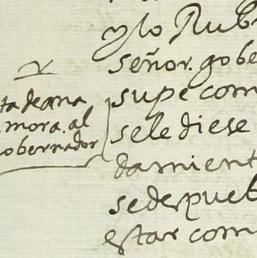 ylo Rub
señor. gobe
supe com
sele diese
damient
sedespueb
estar com
ta de ana
mora. al
obernador